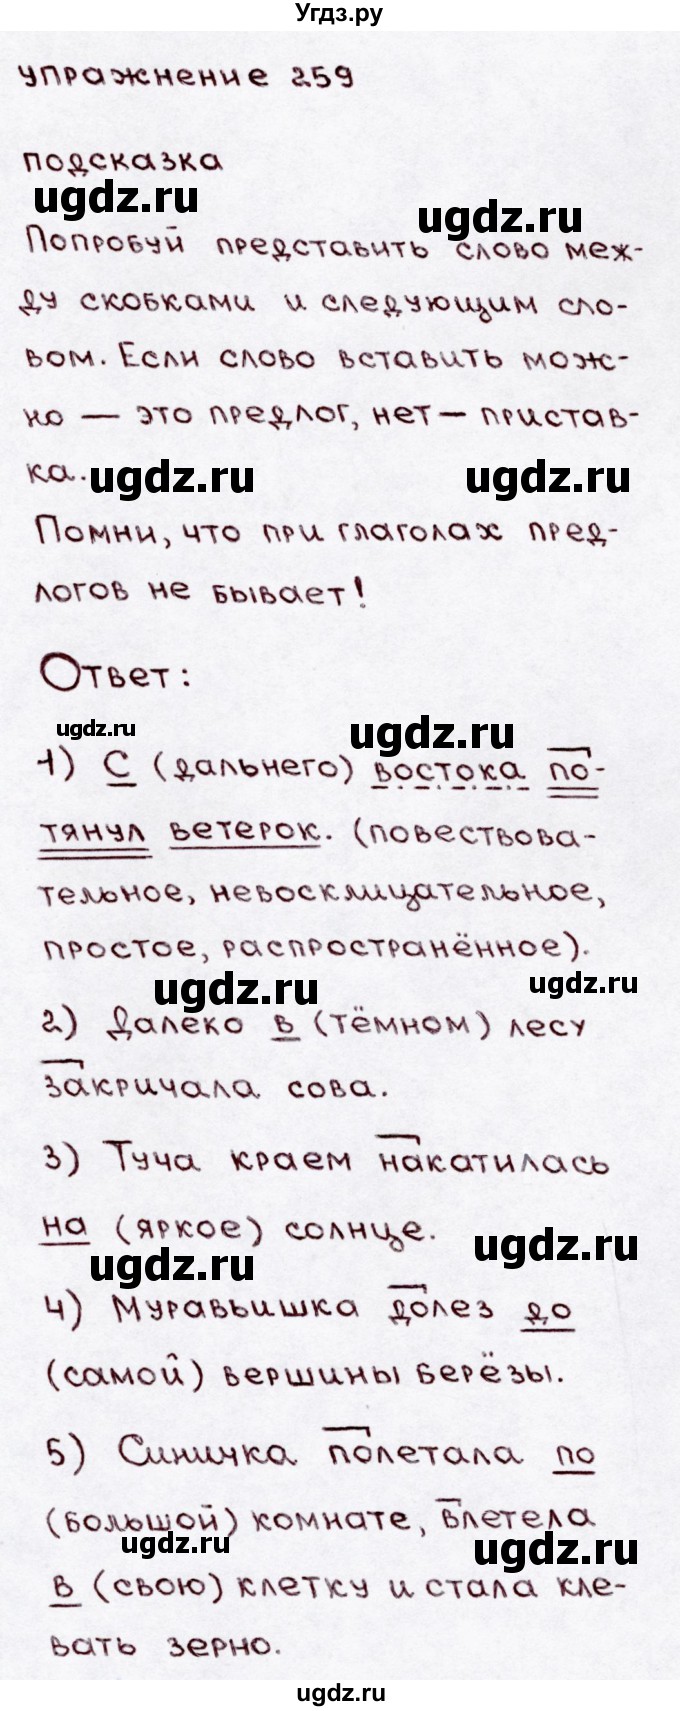 Угдз.ру
упражнение 259
подсказка
ugdz.ru
ugdz.ru
Попробуй представить слово меж-
ду скобками и следующим сло-
вом. Если слово вставить мож-
но — это предлог, нет — пристав-
ка.
ugdz.ru
ugdz.ru
Помни, что при глаголах пред-
логов не бывает!
Ответ:
ugdz.ru
ugdz.ru
1) С (дальнего) востока по-
тянул ветерок. (повествова-
тельное, невосклицательное,
простое, распространённое).
ugdz.ru
ugdz.ru
2) Далеко в (тёмном) лесу
закричала сова.
3) Туча краем накатилась
на (яркое) солнце.
ugdz.ru
ugdz.ru
4) Муравьишка долез до
(самой) вершины берёзы.
5) Синичка полетала по
(большой) комнате, влетела
ugdz.ru
ugdz.ru
в (свою) клетку и стала кле-
вать зерно.
ugdz.ru